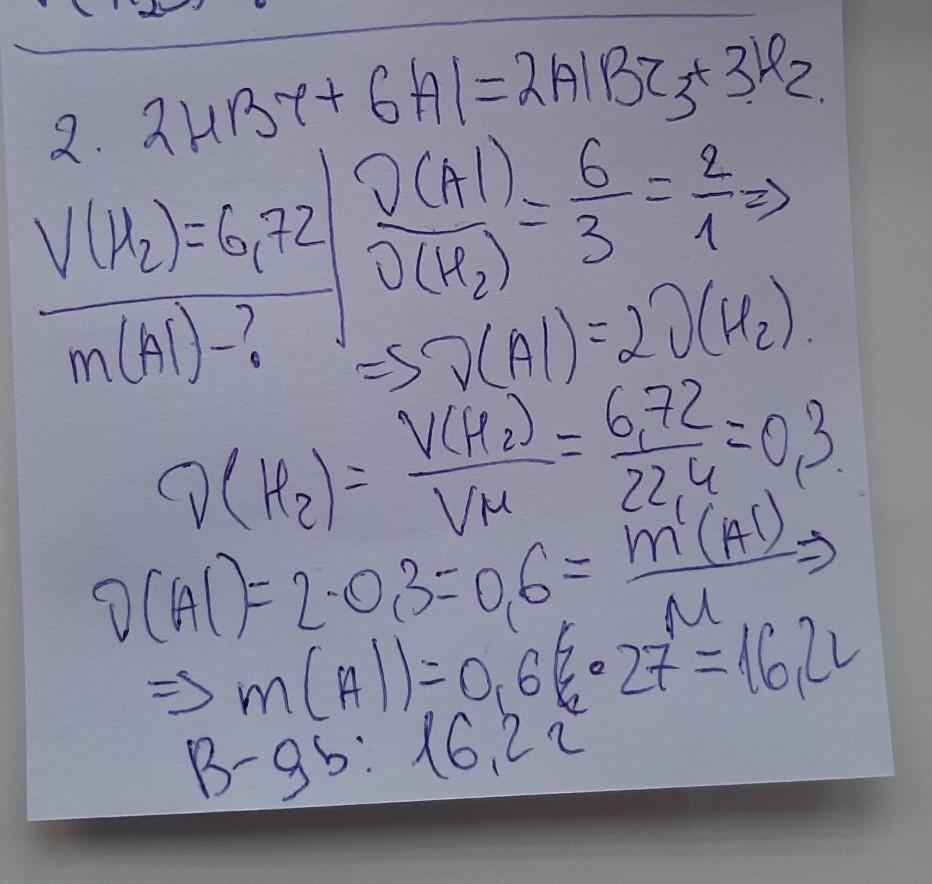 2. 2HBr + 6Al = 2AlBr₃ + 3H₂.
V(H₂) = 6,72
m(Al) - ?
ν(Al)/ν(H₂) = 6/3 = 2/1 =>
=> ν(Al) = 2ν(H₂).
ν(H₂) = V(H₂)/Vм = 6,72/22,4 = 0,3.
ν(Al) = 2·0,3 = 0,6 = m(Al)/M =>
=> m(Al) = 0,6 · 27 = 16,2г
В-дь: 16,2г